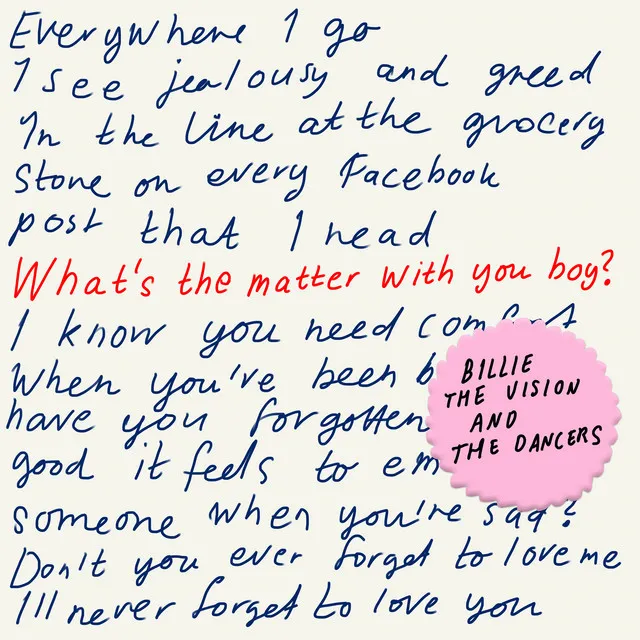 Everywhere I go
I see jealousy and greed
In the line at the grocery
Store on every Facebook
post that I read
What's the matter with you boy?
I know you need comfort
When you've been
have you forgotten
good it feels to
someone when you're sad?
Don't you ever forget to love me
I'll never forget to love you
BILLIE
THE VISION
AND
THE DANCERS